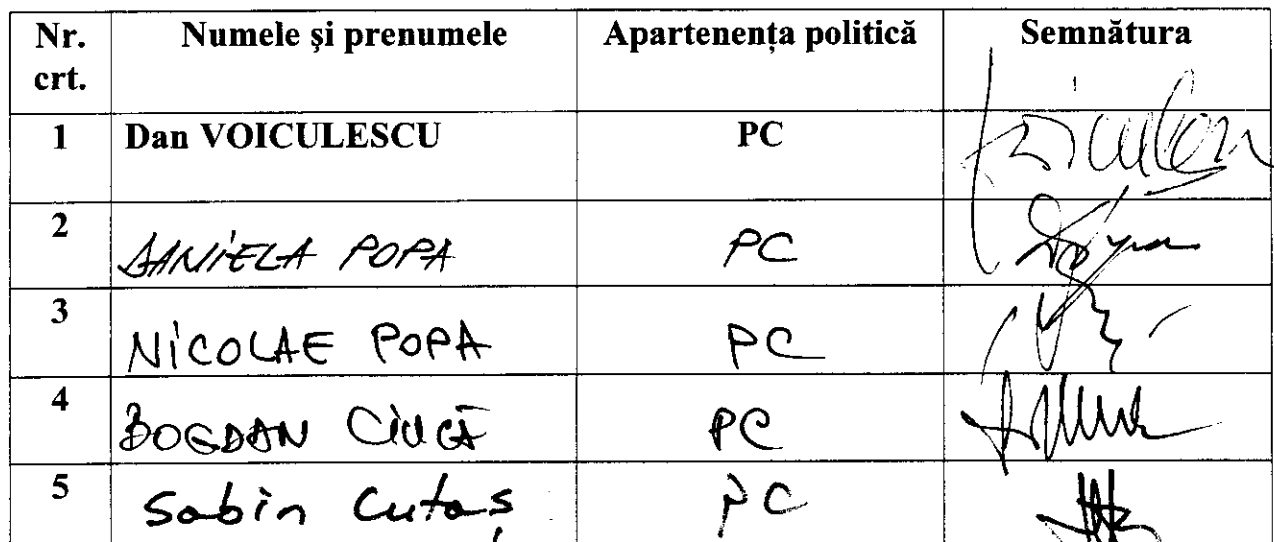 Nr. crt. Numele și prenumele Apartenența politică Semnătura
1 Dan VOICULESCU PC
2 DANIELA POPA PC
3 NICOLAE POPA PC
4 BOGDAN CIUCĂ PC
5 Sabin Cutaș PC